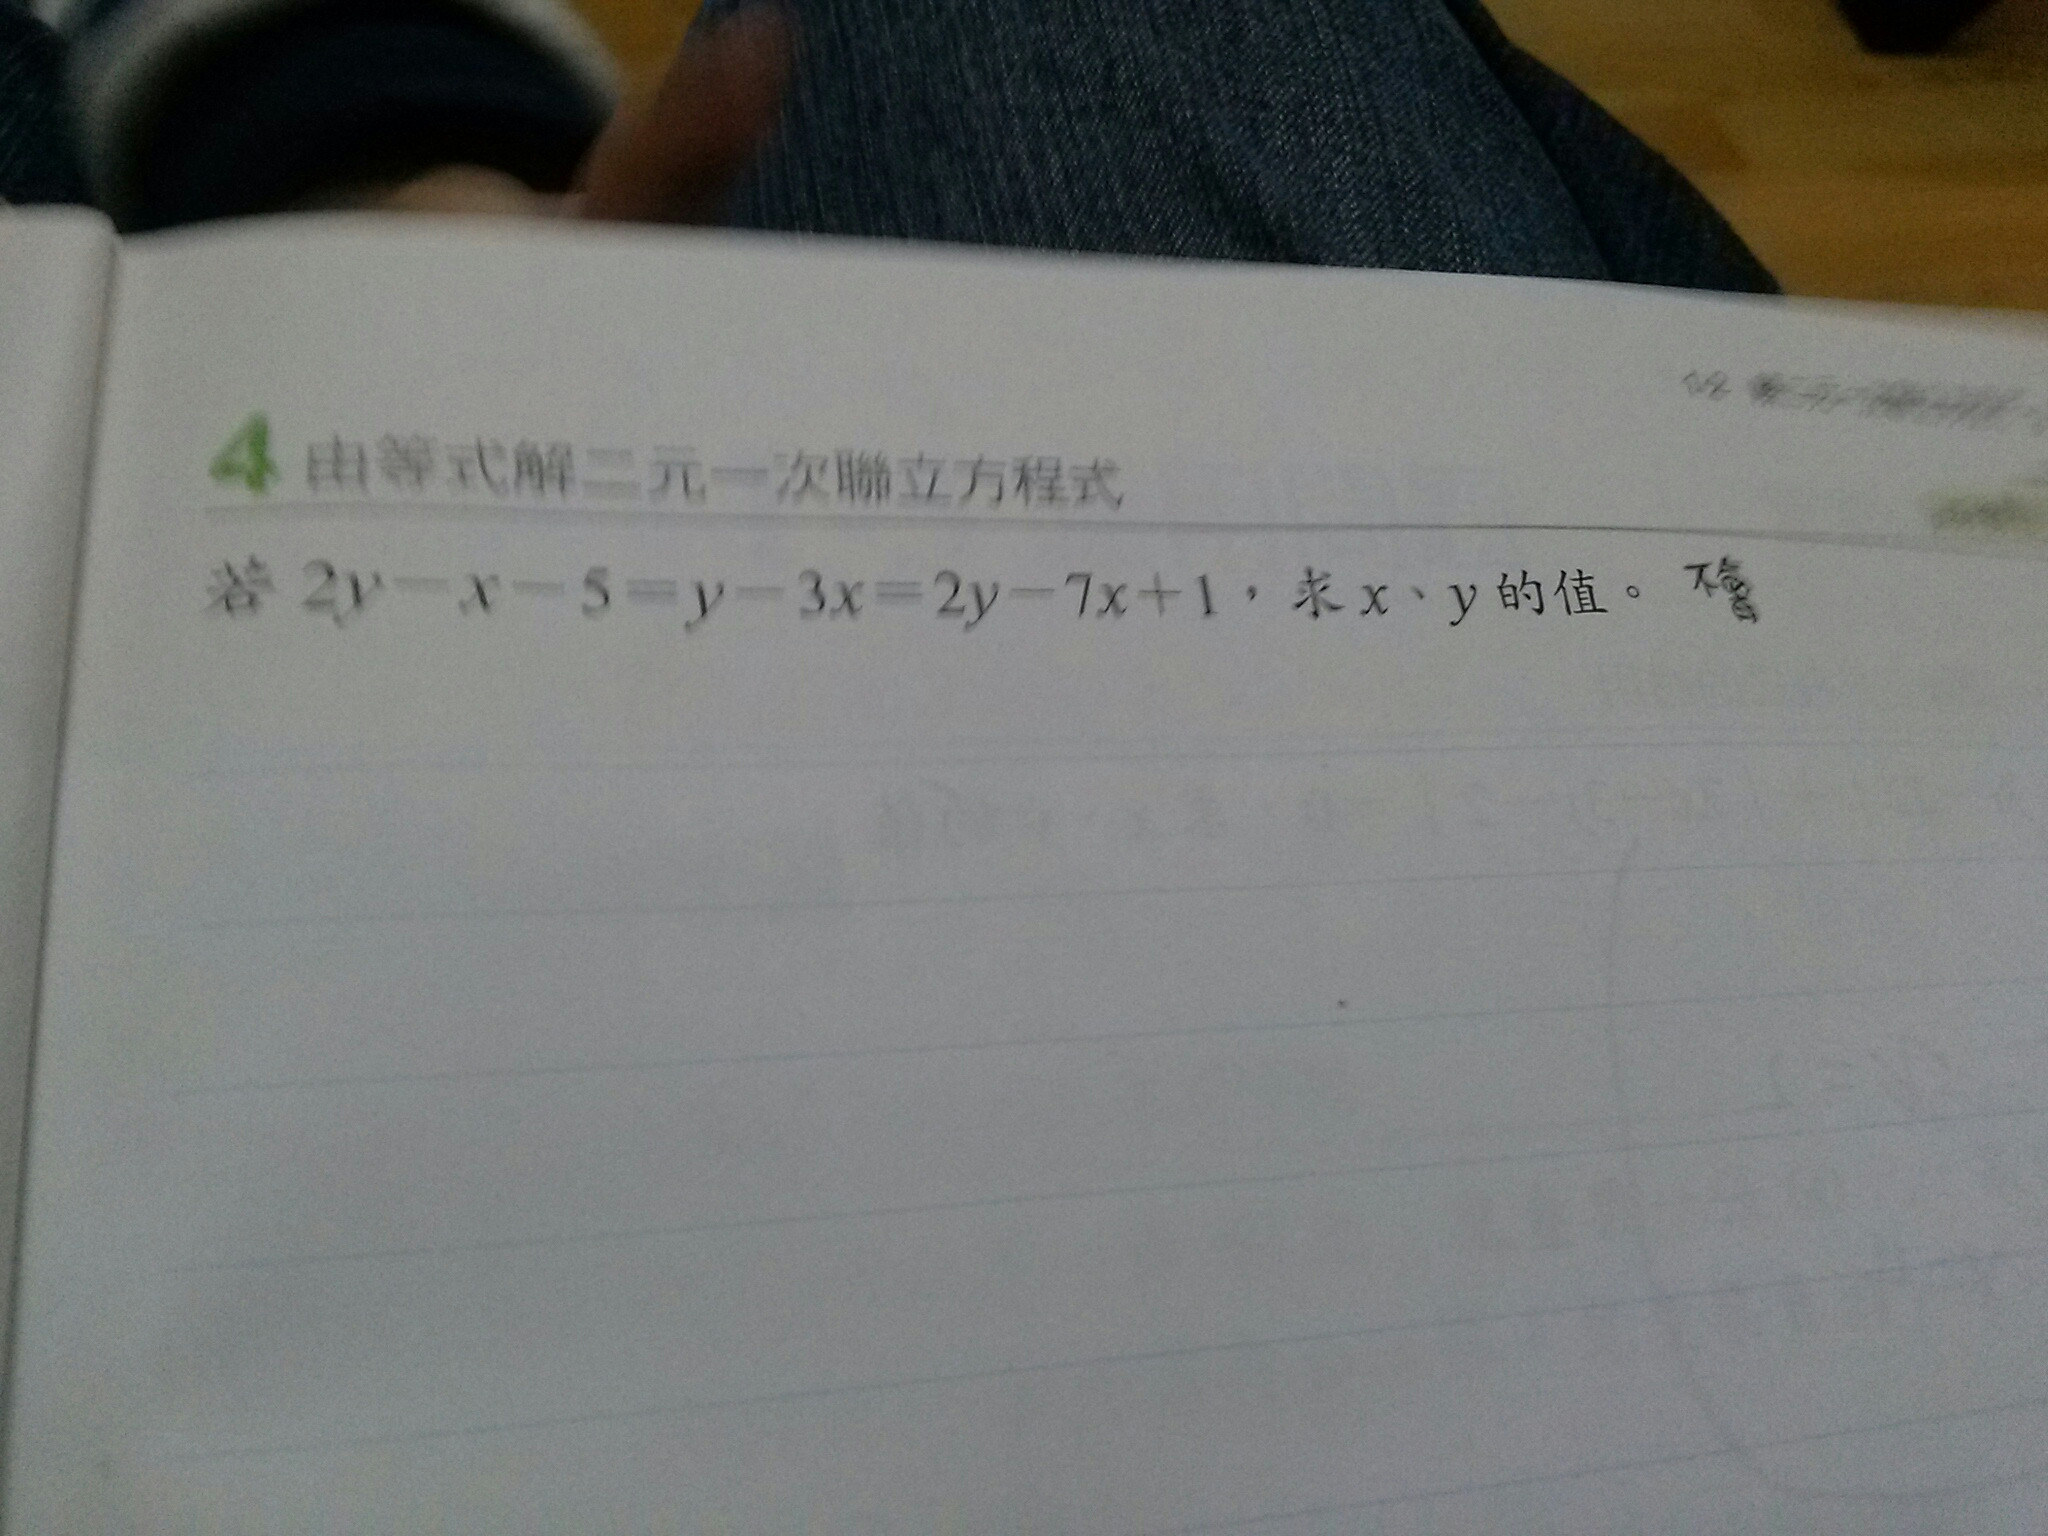 4 由等式解二元一次聯立方程式
若 2y－x－5＝y－3x＝2y－7x＋1，求 x、y 的值。 不會